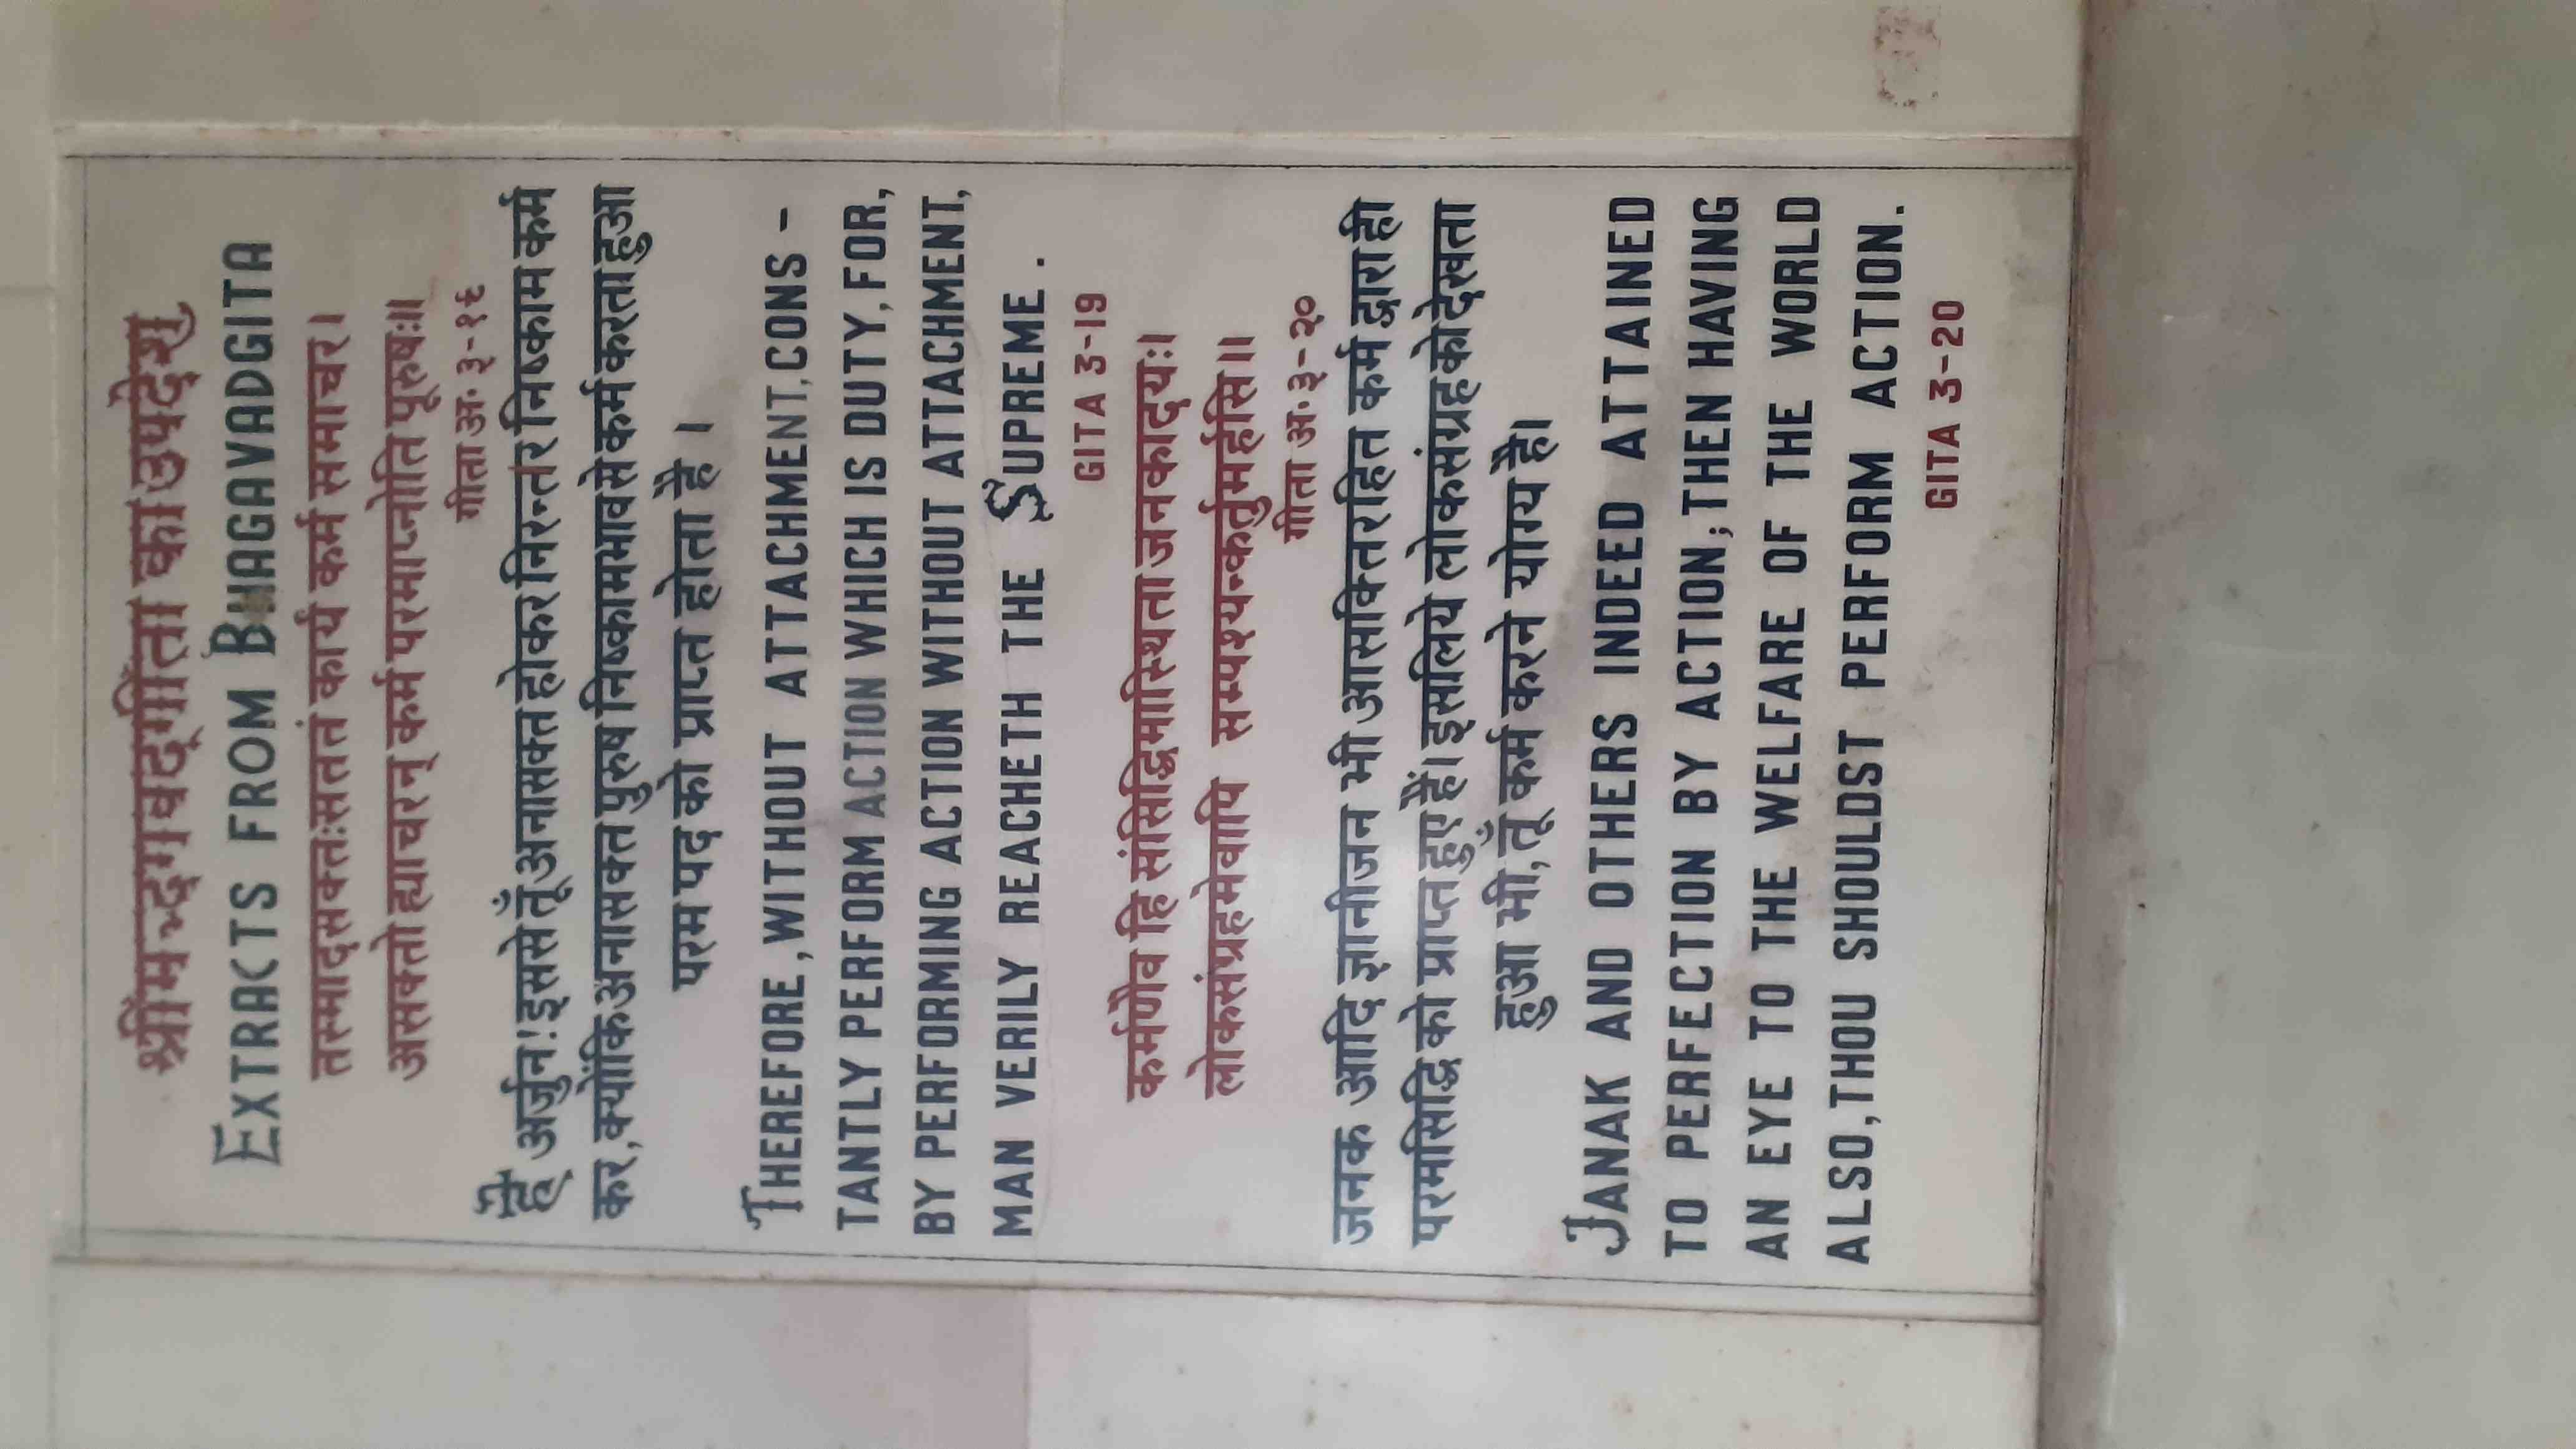 श्रीमद्भगवद्गीता का उपदेश
EXTRACTS FROM BHAGAVADGITA
तस्मादसक्तःसततं कार्यं कर्म समाचर।
असक्तो ह्याचरन् कर्म परमाप्नोति पूरुषः॥
गीता अ॰ ३-१९
हे अर्जुन! इससे तूँ अनासक्त होकर निरन्तर निष्काम कर्म
कर, क्योंकि अनासक्त पुरुष निष्कामभावसे कर्म करता हुआ
परम पद को प्राप्त होता है ।
THEREFORE, WITHOUT ATTACHMENT, CONS -
TANTLY PERFORM ACTION WHICH IS DUTY, FOR,
BY PERFORMING ACTION WITHOUT ATTACHMENT,
MAN VERILY REACHETH THE SUPREME.
GITA 3-19
कर्मणैव हि संसिद्धिमास्थिता जनकादयः।
लोकसंग्रहमेवापि सम्पश्यन्कर्तुमर्हसि॥
गीता अ॰ ३-२०
जनक आदि ज्ञानीजन भी आसक्तिरहित कर्म द्वारा ही
परमसिद्धि को प्राप्त हुए हैं। इसलिये लोकसंग्रह को देखता
हुआ भी, तूँ कर्म करने योग्य है।
JANAK AND OTHERS INDEED ATTAINED
TO PERFECTION BY ACTION; THEN HAVING
AN EYE TO THE WELFARE OF THE WORLD
ALSO, THOU SHOULDST PERFORM ACTION.
GITA 3-20